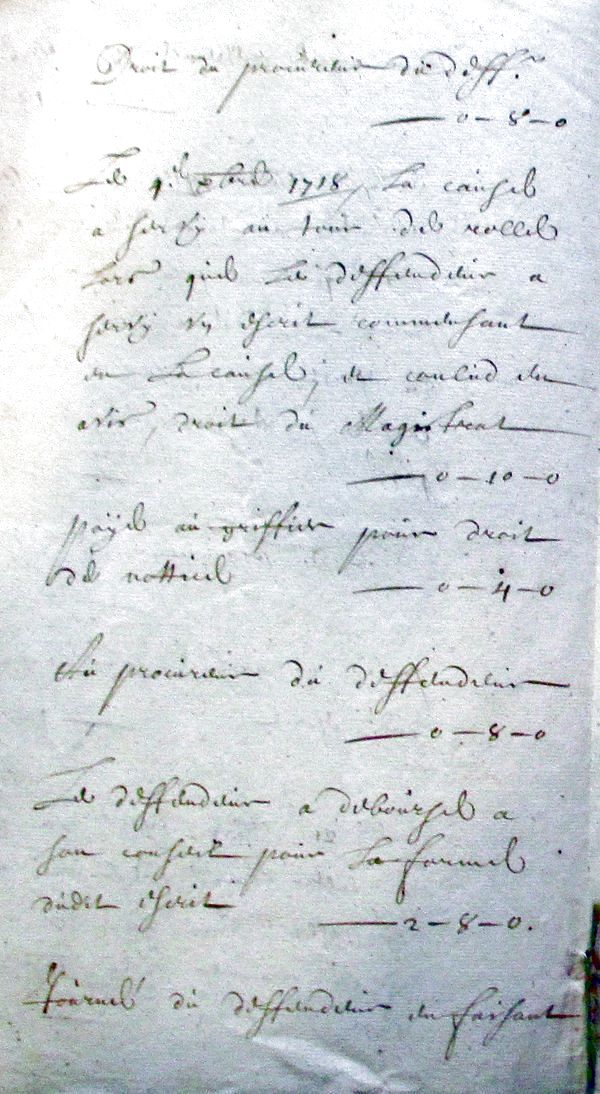 Droit du procureur du deff.r
— 0 – 8 – 0
Le 9.e xbre 1718, La cause
a servy au tour de rolle
lors que Le deffendeur a
servy un escrit commensant
en La cause, et conclud en
avis, droit du Magistrat
— 0 – 10 – 0
payé au griffier pour droit
de nottice — 0 – 4 – 0
Au procureur du deffendeur
— 0 – 8 – 0
Le deffendeur a debourse a
son conseil pour La forme
dudit escrit
— 2 – 8 – 0.
Journée du deffendeur en faisant